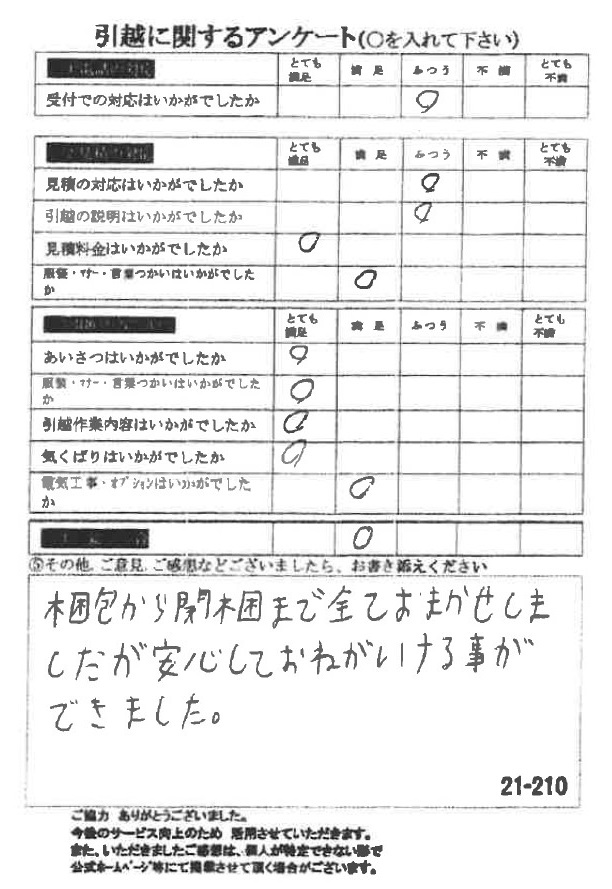 引越に関するアンケート(○を入れて下さい)
とても満足 満足 ふつう 不満 とても不満
受付での対応はいかがでしたか ○
とても満足 満足 ふつう 不満 とても不満
見積の対応はいかがでしたか ○
引越の説明はいかがでしたか ○
見積料金はいかがでしたか ○
服装・マナー・言葉つかいはいかがでした
か ○
とても満足 満足 ふつう 不満 とても不満
あいさつはいかがでしたか ○
服装・マナー・言葉つかいはいかがでした
か ○
引越作業内容はいかがでしたか ○
気くばりはいかがでしたか ○
電気工事・オプションはいかがでした
か ○
○
⑤その他、ご意見、ご感想などございましたら、お書き添えください
梱包から開梱まで全ておまかせしま
したが安心しておねがいける事が
できました。
21-210
ご協力 ありがとうございました。
今後のサービス向上のため 活用させていただきます。
また、いただきましたご感想は、個人が特定できない形で
公式ホームページ等にて掲載させて頂く場合がございます。